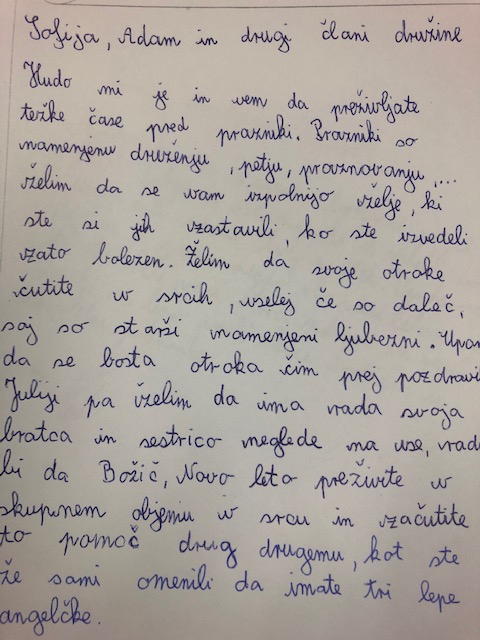 Sofija, Adam in drugi člani družine
Hudo mi je in vem da preživljate
težke čase pred prazniki. Prazniki so
namenjeni druženju, petju, praznovanju,...
želim da se vam izpolnijo želje, ki
ste si jih zastavili, ko ste izvedeli
zato bolezen. Želim da svoje otroke
čutite v srcih, uselej če so daleč,
saj so starši namenjeni ljubezni. Upam
da se bosta otroka čim prej pozdravi
Juliji pa želim da ima rada svoja
bratca in sestrico neglede na vse, rada
bi da Božič, Novo leto preživite v
skupnem objemu v srcu in začutite
to pomoč drug drugemu, kot ste
že sami omenili da imate tri lepe
angelčke.